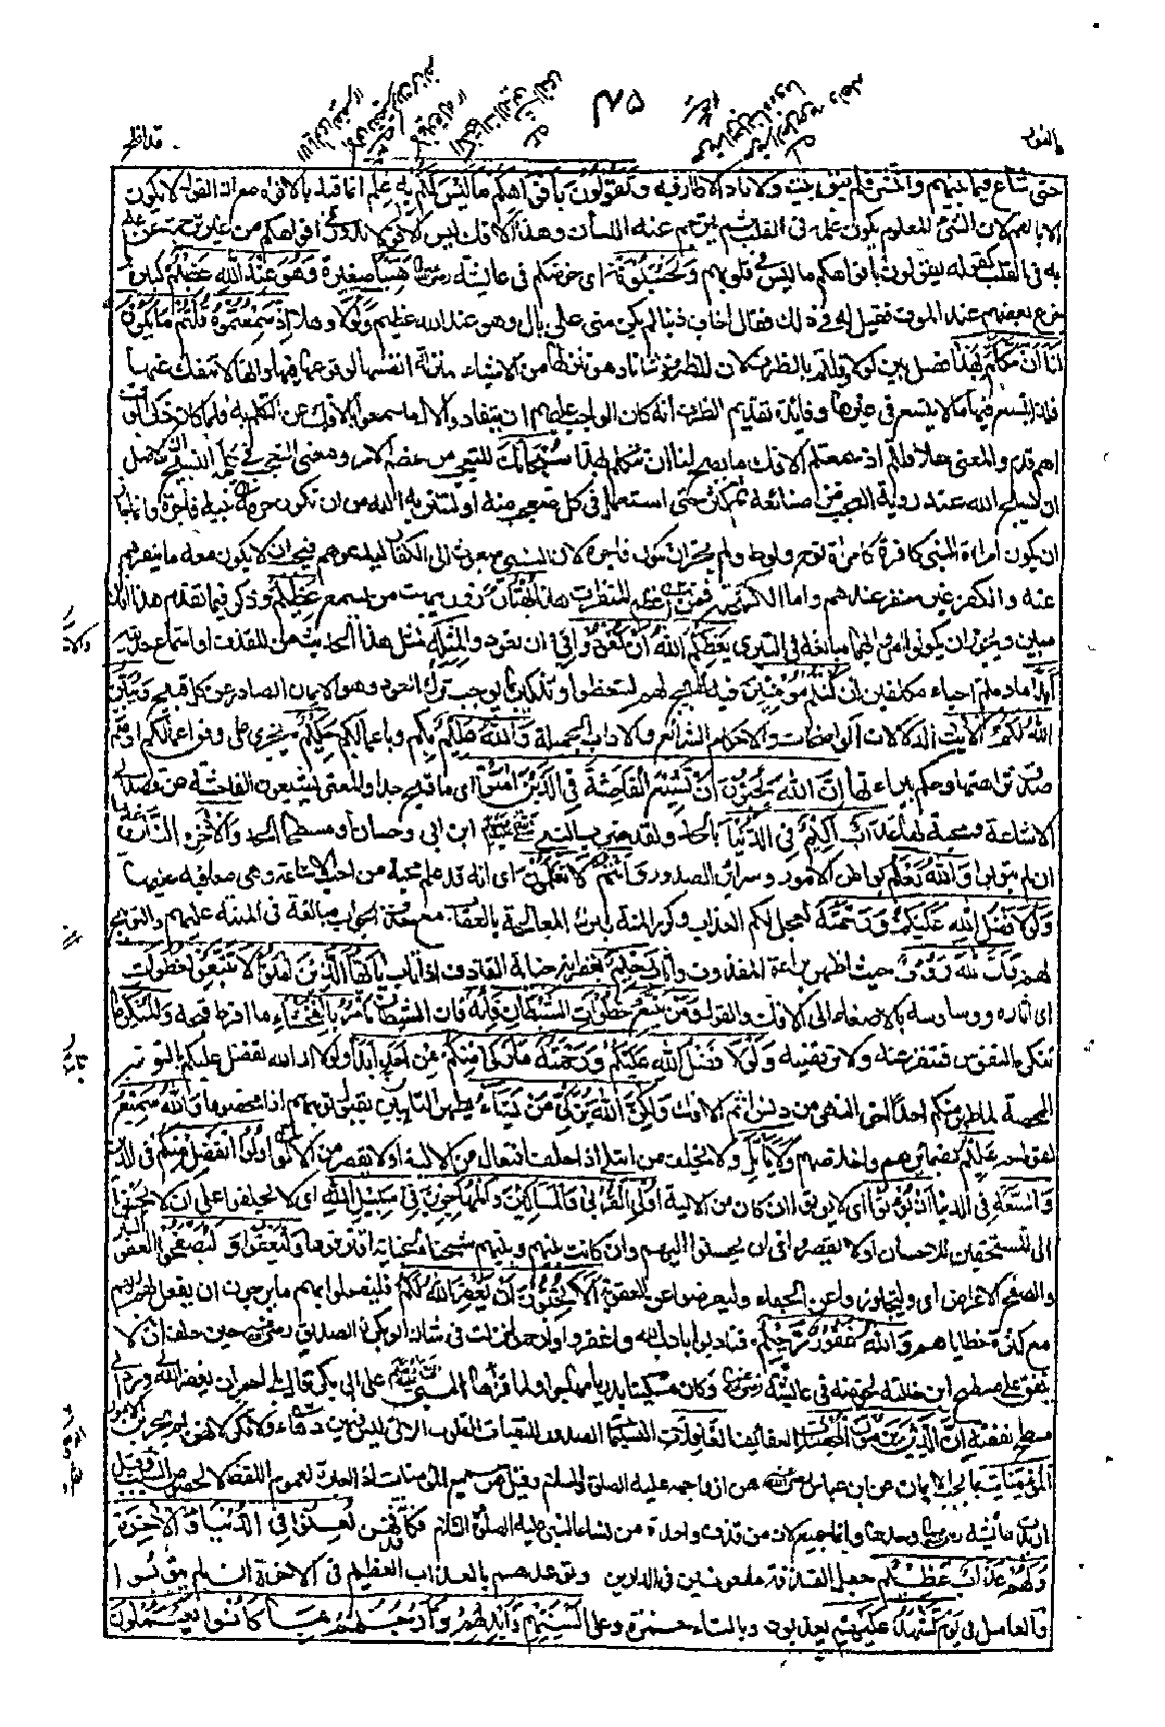 ٧٤٥
قد افلح
النور
حتى شاع فيما بينهم وانتشر فلم يبق بيت ولا ناد الا طار فيه وَتَقُولُونَ بِأَفْوَاهِكُم مَّا لَيْسَ لَكُم بِهِ عِلْمٌ انما قيد بالافواه مع ان القول لا يكون
الا بالفم لان الشئ المعلوم يكون علمه في القلب ثم يترجم عنه اللسان وهذا الافك ليس الا قولا يدور في افواهكم من غير ترجمة عن علم
به في القلب كقوله يقولون بافواههم ما ليس في قلوبهم وَتَحْسَبُونَهُ اى خوضكم في عائشة رضى الله عنها هَيِّنًا صغيرة وَهُوَ عِندَ اللَّهِ عَظِيمٌ كبيرة
جزع بعضهم عند الموت فقيل له في ذلك فقال اخاف ذنبا لم يكن منى على بال وهو عند الله عظيم وَلَوْلَا وهلا إِذْ سَمِعْتُمُوهُ قُلْتُم مَّا يَكُونُ
لَنَا أَن نَّتَكَلَّمَ بِهَذَا فصل بين لولا وقلتم بالظرف لان للظروف شانا وهو تنزلها من الاشياء منزلة انفسها لوقوعها فيها وانها لا تنفك عنها
فلذا يتسع فيها ما لا يتسع في غيرها وفائدة تقديم الظرف انه كان الواجب عليهم ان يتفادوا اول ما سمعوا بالافك عن التكلم به فلما كان ذكر الوقت
اهم قدم والمعنى هلا قلتم اذ سمعتم الافك ما يصح لنا ان نتكلم بهذا سُبْحَانَكَ للتعجب من عظم الامر ومعنى التعجب في كلمة التسبيح ان الاصل
ان يسبح الله عند رؤية العجيب من صنائعه ثم كثر حتى استعمل في كل متعجب منه او لتنزيه الله من ان تكون حرمة نبيه فاجرة وانما جاز
ان يكون امراة النبى كافرة كامراة نوح ولوط ولم يجز ان تكون فاجرة لان النبى مبعوث الى الكفار ليدعوهم فيجب ان لا يكون معه ما ينفرهم
عنه والكفر غير منفر عندهم واما الكشخنة فمن اعظم المنفرات هَذَا بُهْتَانٌ زور يبهت من يسمع عَظِيمٌ وذكر فيما تقدم هذا افك
مبين ويجوز ان يكونوا امروا بهما مبالغة في التبرى يَعِظُكُمُ اللَّهُ أَن تَعُودُوا في ان تعودوا لِمِثْلِهِ لمثل هذا الحديث من القذف او استماع حديثه
أَبَدًا ما دمتم احياء مكلفين إِن كُنتُم مُّؤْمِنِينَ فيه تهييج لهم ليتعظوا وتذكير بما يوجب ترك العود وهو الايمان الصاد عن كل قبيح وَيُبَيِّنُ
اللَّهُ لَكُمُ الْآيَاتِ الدلالات الواضحات والاحكام الشرائع والآداب الجميلة وَاللَّهُ عَلِيمٌ بكم وباعمالكم حَكِيمٌ يجزى على وفق اعمالكم او علم
صدق نزاهتها وحكم ببراءتها إِنَّ الَّذِينَ يُحِبُّونَ أَن تَشِيعَ الْفَاحِشَةُ فِي الَّذِينَ آمَنُوا اى ما قبح جدا والمعنى يشيعون الفاحشة عن قصد الى
الاشاعة ومحبة لها لَهُمْ عَذَابٌ أَلِيمٌ فِي الدُّنْيَا بالحد ولقد ضرب النبى ابن ابى وحسان ومسطحا الحد وَالْآخِرَةِ النار وعدها
ان لم يتوبوا وَاللَّهُ يَعْلَمُ بواطن الامور وسرائر الصدور وَأَنتُمْ لَا تَعْلَمُونَ اى انه قد علم محبة من احب الاشاعة وهى معاقبه عليها
وَلَوْلَا فَضْلُ اللَّهِ عَلَيْكُمْ وَرَحْمَتُهُ لعجل لكم العذاب وكرر المنة بترك المعاجلة بالعقاب مع حذف الجواب مبالغة في المنة عليهم والتوبيخ
لهم وَأَنَّ اللَّهَ رَءُوفٌ حيث اظهر براءة المقذوف واثاب رَّحِيمٌ بغفرانه جناية القاذف اذا تاب يَا أَيُّهَا الَّذِينَ آمَنُوا لَا تَتَّبِعُوا خُطُوَاتِ
اى اثاره ووساوسه بالاصغاء الى الافك والقول وَمَن يَتَّبِعْ خُطُوَاتِ الشَّيْطَانِ فَإِنَّهُ فان الشيطان يَأْمُرُ بِالْفَحْشَاءِ ما افرط قبحه وَالْمُنكَرِ ما
تنكره النفوس فتنفر عنه ولا ترتضيه وَلَوْلَا فَضْلُ اللَّهِ عَلَيْكُمْ وَرَحْمَتُهُ مَا زَكَىٰ مِنكُم مِّنْ أَحَدٍ أَبَدًا ولولا ان الله تفضل عليكم بالتوبة
الممحصة لما طهر منكم احد اخر الدهر من دنس اثم الافك وَلَٰكِنَّ اللَّهَ يُزَكِّي مَن يَشَاءُ يطهر التائبين بقبول توبتهم اذا محضوها وَاللَّهُ سَمِيعٌ
لقولهم عَلِيمٌ بضمائرهم واخلاصهم وَلَا يَأْتَلِ ولا يحلف من ائتلى اذا حلف افتعال من الالية او لا يقصر من الالو أُولُو الْفَضْلِ مِنكُمْ في الدين
وَالسَّعَةِ في الدنيا أَن يُؤْتُوا اى لا يؤتوا ان كان من الالية أُولِي الْقُرْبَىٰ وَالْمَسَاكِينَ وَالْمُهَاجِرِينَ فِي سَبِيلِ اللَّهِ اى لا يحلفوا على ان لا يحسنوا
الى المستحقين للاحسان او لا يقصروا في ان يحسنوا اليهم وان كانت بينهم وبينهم شحناء لجناية اقترفوها وَلْيَعْفُوا وَلْيَصْفَحُوا العفو الستر
والصفح الاعراض اى وليتجاوزوا عن الجفاء وليعرضوا عن العقوبة أَلَا تُحِبُّونَ أَن يَغْفِرَ اللَّهُ لَكُمْ فليفعلوا بهم ما يرجون ان يفعل بهم ربهم
مع كثرة خطاياهم وَاللَّهُ غَفُورٌ رَّحِيمٌ فتادبوا بادب الله واغفروا وارحموا نزلت في شان ابى بكر الصديق رضى الله عنه حين حلف ان لا
ينفق على مسطح ابن خالته لخوضه في عائشة رضى الله عنها وكان مسكينا بدريا مهاجرا ولما قراها النبى على ابى بكر قال بلى احب ان يغفر الله لى ورد الى
مسطح نفقته إِنَّ الَّذِينَ يَرْمُونَ الْمُحْصَنَاتِ العفائف الْغَافِلَاتِ السليمات الصدور النقيات القلوب اللاتى ليس فيهن دهاء ولا مكر لانهن لم يجربن الامور
الْمُؤْمِنَاتِ بما يجب الايمان به عن ابن عباس رضى الله عنهما هن ازواجه عليه الصلوة والسلام وقيل هن جميع المؤمنات اذ العبرة لعموم اللفظ لا لخصوص السبب وقيل
اريدت عائشة رضى الله عنها وحدها وانما جمع لان من قذف واحدة من نساء النبى عليه الصلوة والسلام فكانه قذفهن لُعِنُوا فِي الدُّنْيَا وَالْآخِرَةِ
وَلَهُمْ عَذَابٌ عَظِيمٌ جعل القذفة ملعونين في الدارين وتوعدهم بالعذاب العظيم في الاخرة ان لم يتوبوا
والعامل في يَوْمَ تَشْهَدُ عَلَيْهِمْ يعذبون وبالياء حمزة وعلى أَلْسِنَتُهُمْ وَأَيْدِيهِمْ وَأَرْجُلُهُم بِمَا كَانُوا يَعْمَلُونَ